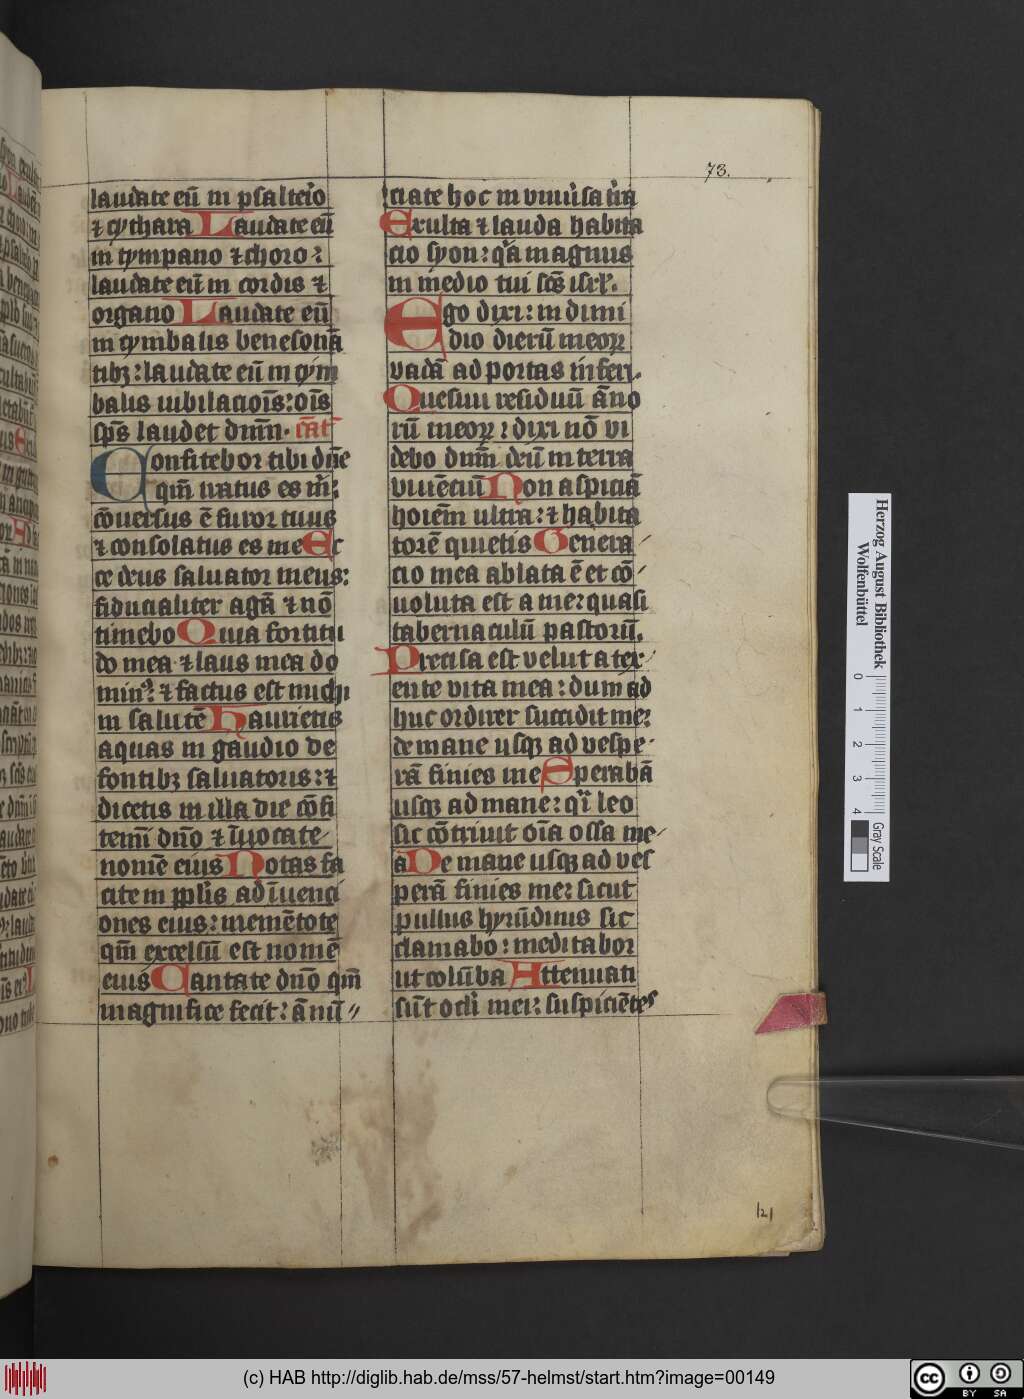 73.
laudate eū in psalterͥo
⁊ cythara Laudate eū
in tympano ⁊ choro:
laudate eū in cordis ⁊
organo Laudate eū
in cymbalis benesonā
tibꝫ: laudate eū in cym
balis iubilacioīs: oīs
sp̄s laudet dnm̄. cāt̄
Confitebor tibi dn̄e
qm̄ iratus es m̄:
cōuersus ē furor tuus
⁊ consolatus es me Ec
ce deus saluator meus:
fiducialiter agā ⁊ nō
timebo Quia fortitu
do mea ⁊ laus mea do
minꝰ: ⁊ factus est michi
in salutē Haurietis
aquas in gaudio de
fontibꝫ saluatoris: ⁊
dicetis in illa die cōfi
temī dn̄o ⁊ īuocate
nomē eius Notas fa
cite in ppl̄is ad īuenci
ones eius: memētote
qm̄ excelsū est nomē
eius Cantate dn̄o qm̄
magnifice fecit: ānū〃
ciate hoc in vniūsa tr̄ra
Exulta ⁊ lauda habita
cio syon: qͥa magnus
in medio tui sc̄s isrl̄.
Ego dixi: in dimi
dio dierū meoꝝ
vadā ad portas inferi.
Quesiui residuū āno
rū meoꝝ: dixi nō vi
debo dnm̄ deū in terra
viuēciū Non aspiciā
hoīem ultra: ⁊ habita
torē quietis Genera
cio mea ablata ē et cō
uoluta est a me: quasi
tabernaculū pastorū.
Precisa est velut a tex
ente vita mea: dum ad
huc ordirer succidit me:
de mane usqꝫ ad vespe
rā finies me Sperabā
usqꝫ ad mane: qͣi leo
sic cōtriuit oīa ossa me
a De mane usqꝫ ad ves
perā finies me: sicut
pullus hyrūdinis sic
clamabo: meditabor
ut colūba Attenuati
sūt ocl̄i mei: suspiciētes
121
Herzog August Bibliothek
Wolfenbüttel
0 1 2 3 4
Gray Scale
(c) HAB http://diglib.hab.de/mss/57-helmst/start.htm?image=00149
cc BY SA